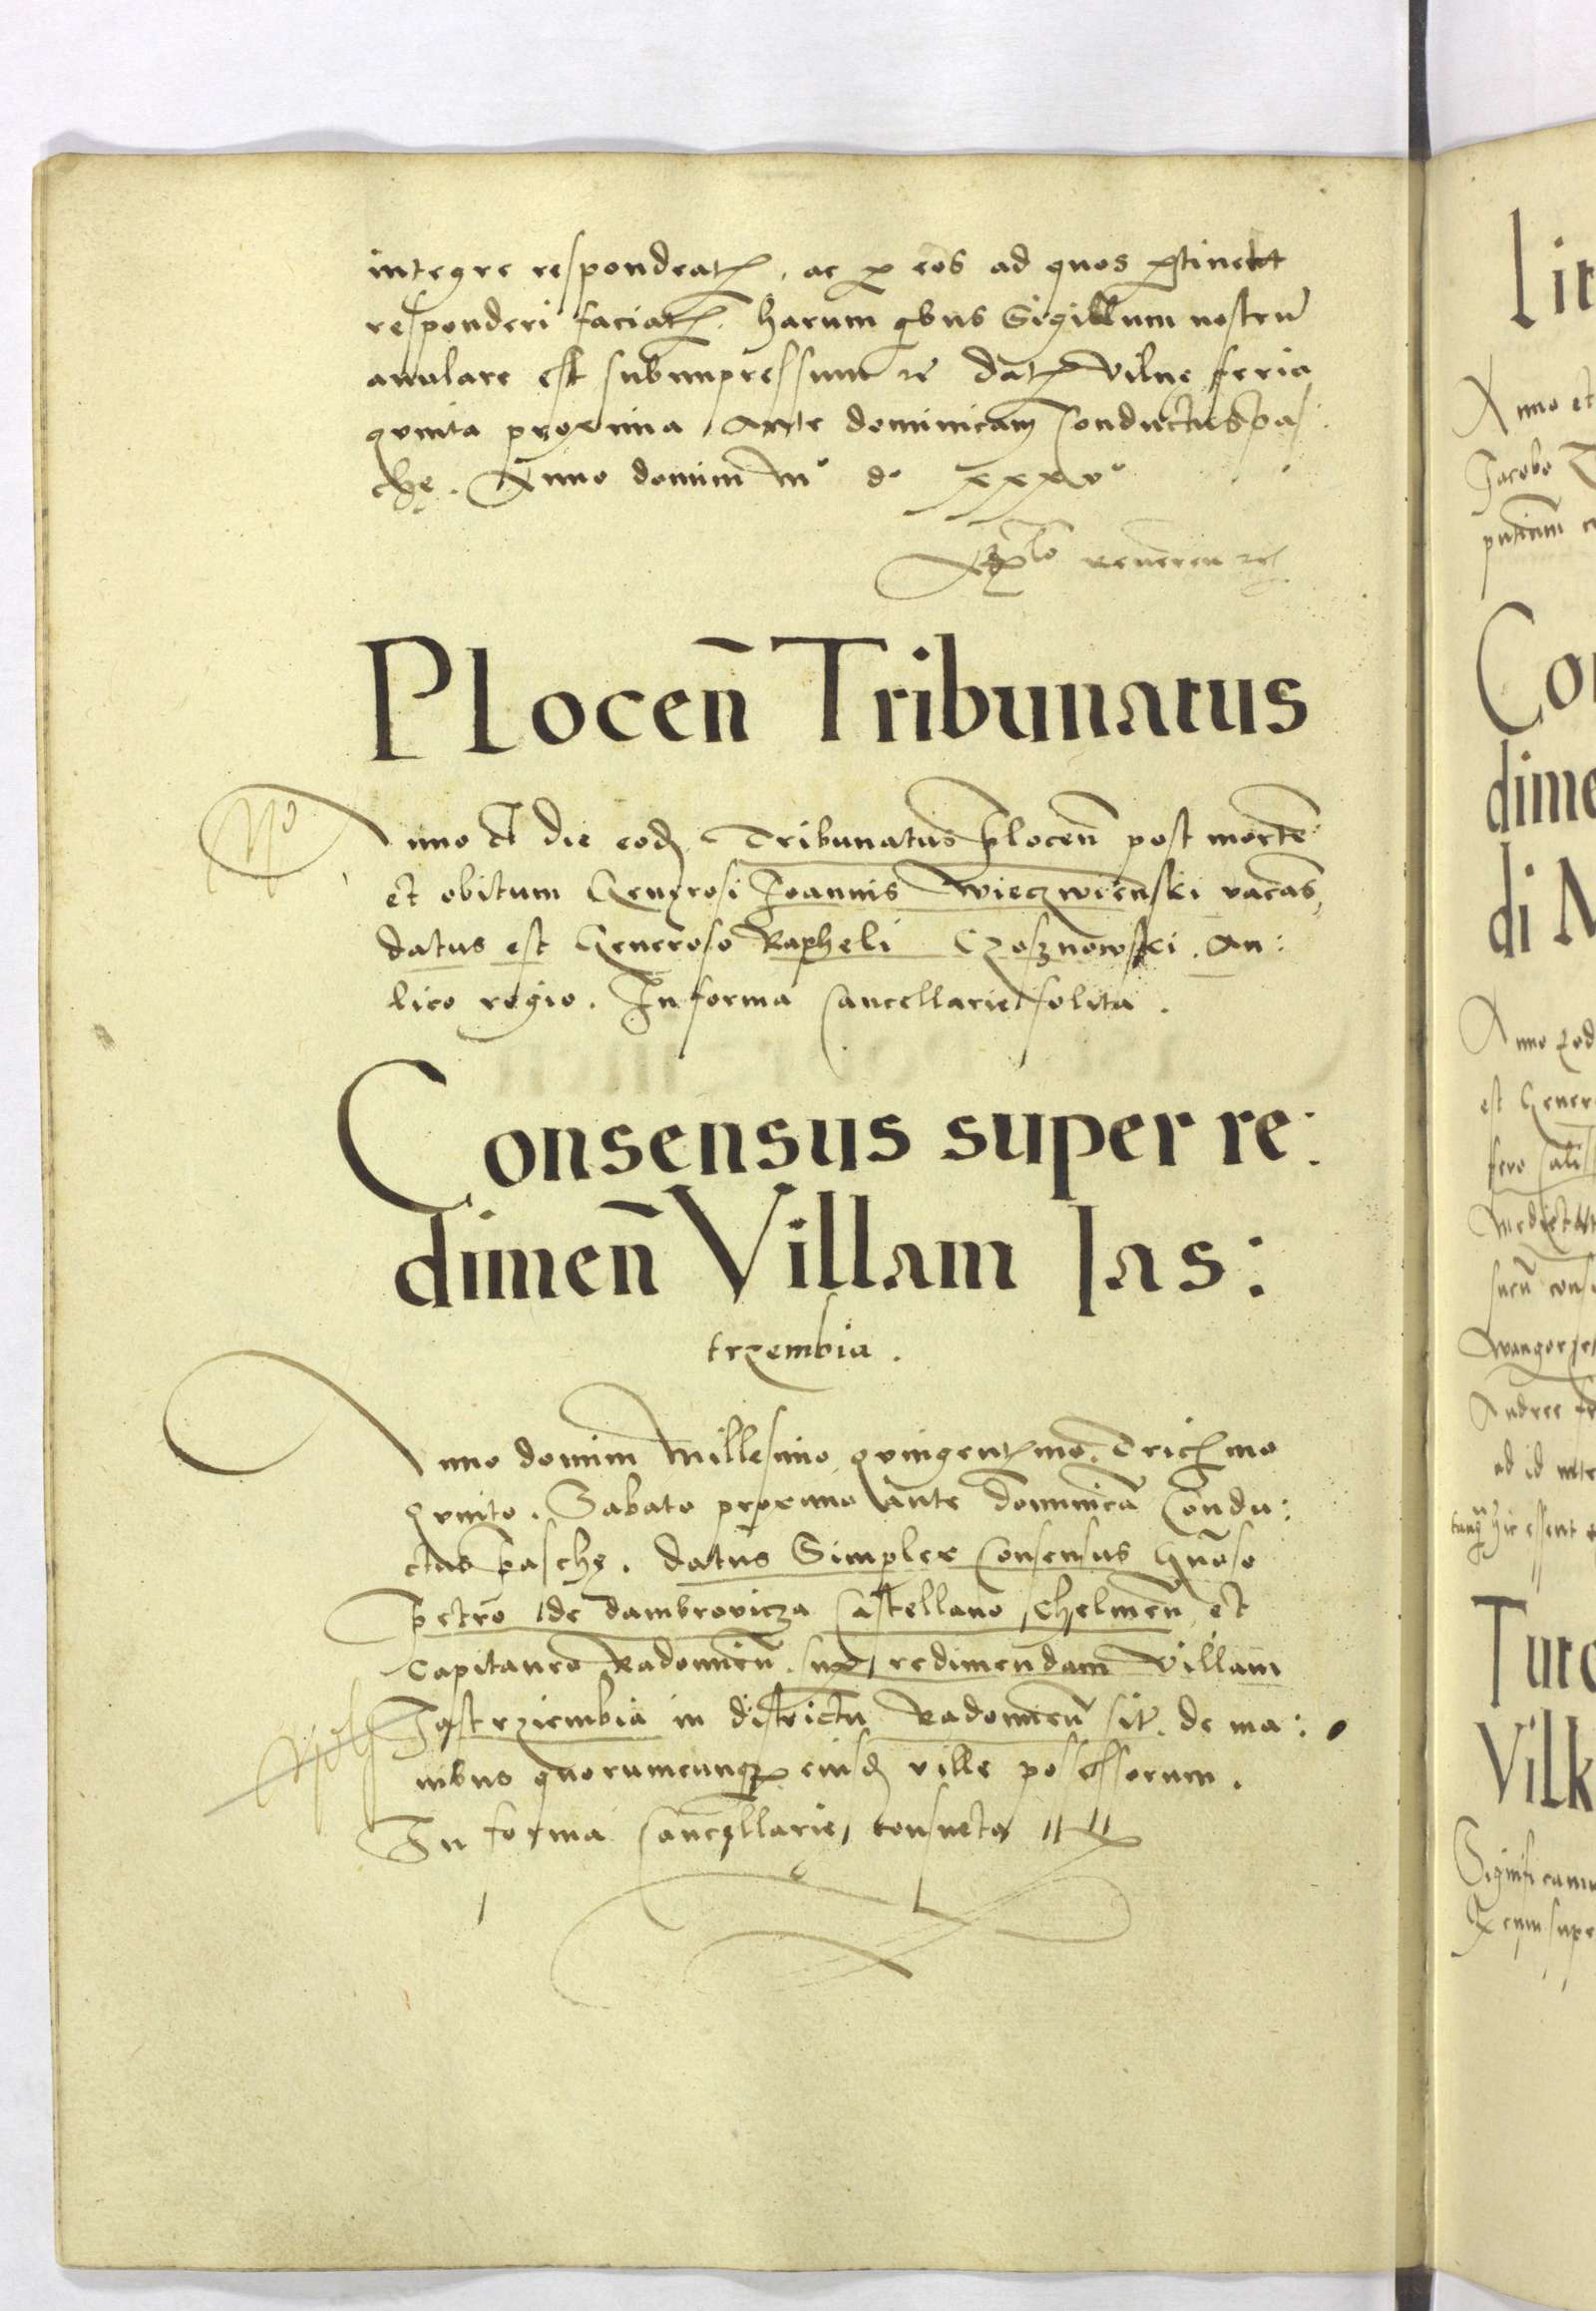 integre respondeatꝭ, ac ꝑ eos ad quos ꝑtinet
responderi faciatꝭ. harum qbus Sigillum nostrū
anulare est subimpressum ꝛc̄ datꝭ Vilne feria
quinta proxima Ante dominicam Conductus pas
chę. Anno domini mº dº xxxvº
Plocen̄ Tribunatus
Anno et die eodꝭ Tribunatus plocen̄ post mortē
et obitum Generosi Joannis Wieczwienski vacās,
datus est Generoso Rapheli Czosznowski. Au:
lico regio. In forma Cancellarie solita.
Consensus super re:
dimen̄ Villam Jas:
trzembia.
Anno domini Millesimo quingentꝭmo. Tricꝭmo
quinto. Sabato proximo ante dominicā Condu:
ctus paschę. datus Simplex Consensus Gn̄oso
petro de dambrovicza Castellano Chelmen̄ et
Capitaneo Radomien̄ suꝑ redimendam Villam
Jastrziembia in districtu Radomien̄ sit̄. de ma:
nibus quorumcunqꝫ eiusdꝭ ville possessorum.
In forma Cancellarie consueta
Anno et
Jacobo
Co
dime
di M
Anno eod
est Gener
Andree
Turc
Vilk
Significamus